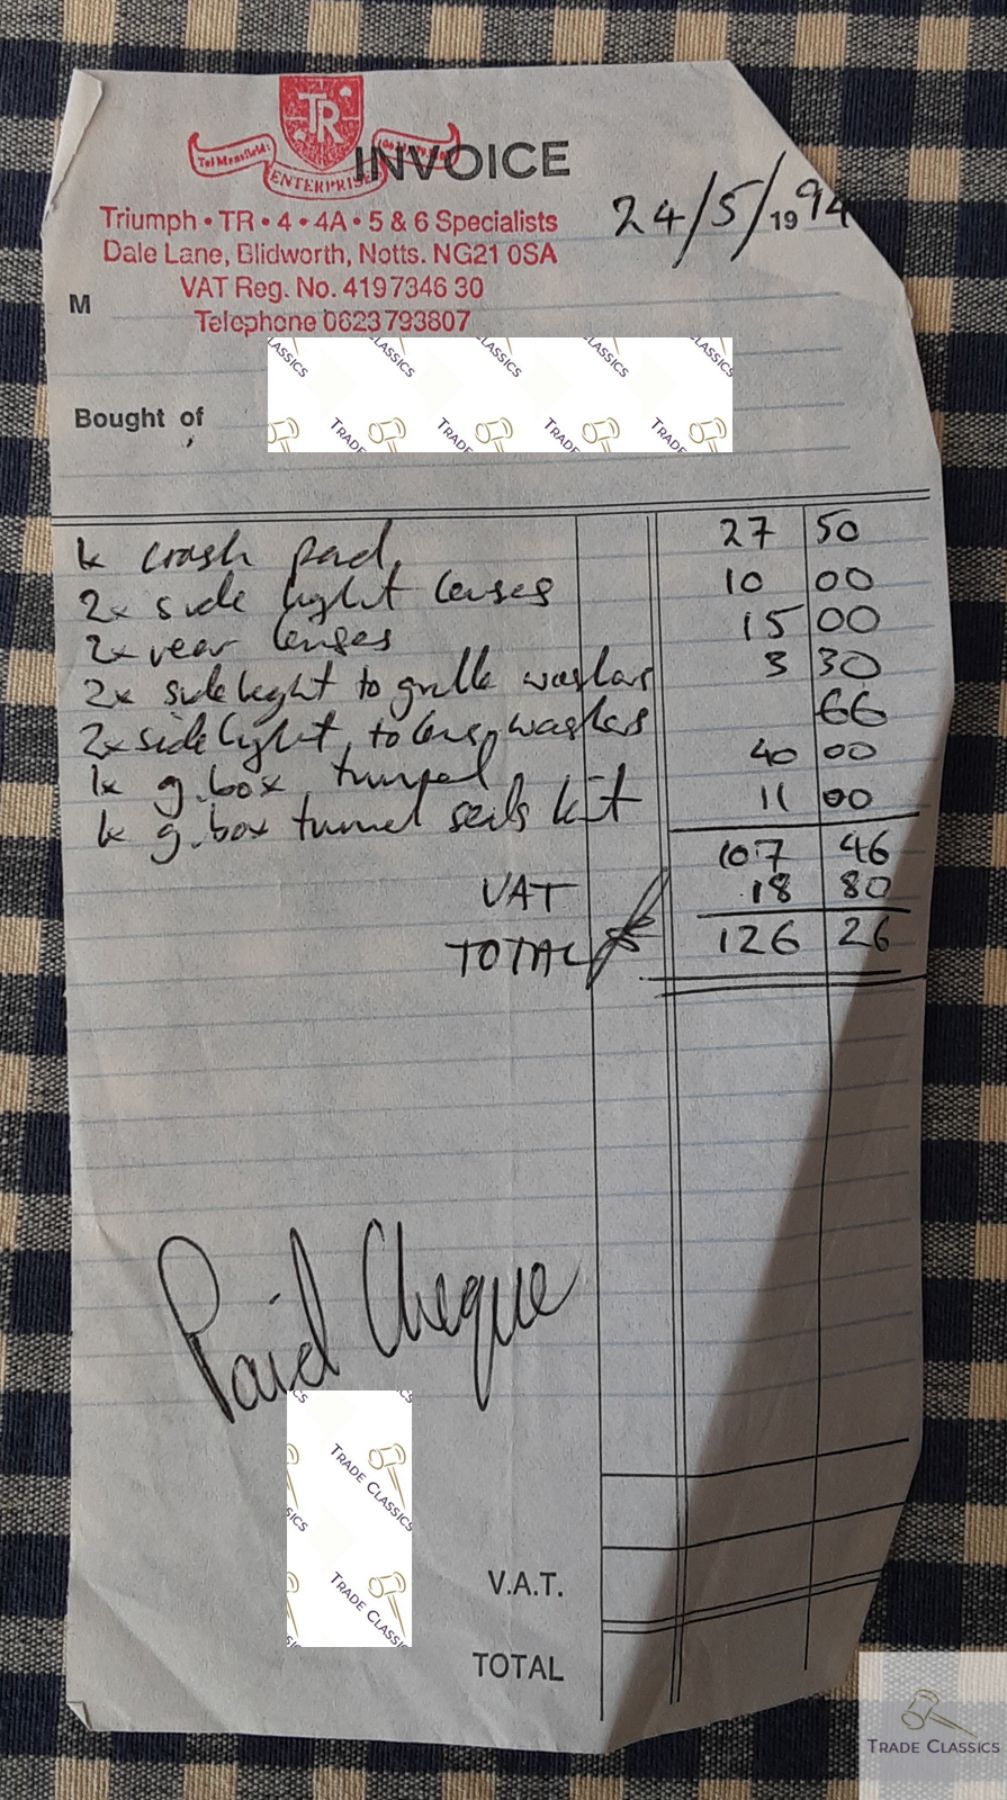 TR
Tel Mansfield:
ENTERPRISES
INVOICE
24/5/1994
Triumph • TR • 4 • 4A • 5 & 6 Specialists
Dale Lane, Blidworth, Notts. NG21 0SA
VAT Reg. No. 4197346 30
M
Telephone 0623 793807
Bought of
1x crash pad 27 50
2x side light lenses 10 00
2x rear lenses 15 00
2x sidelight to grille washers 3 30
2x sidelight to lens washers 66
1x g.box tunnel 40 00
1x g.box tunnel seals kit 11 00
107 46
VAT 18 80
TOTAL £ 126 26
Paid Cheque
V.A.T.
TOTAL
TRADE CLASSICS